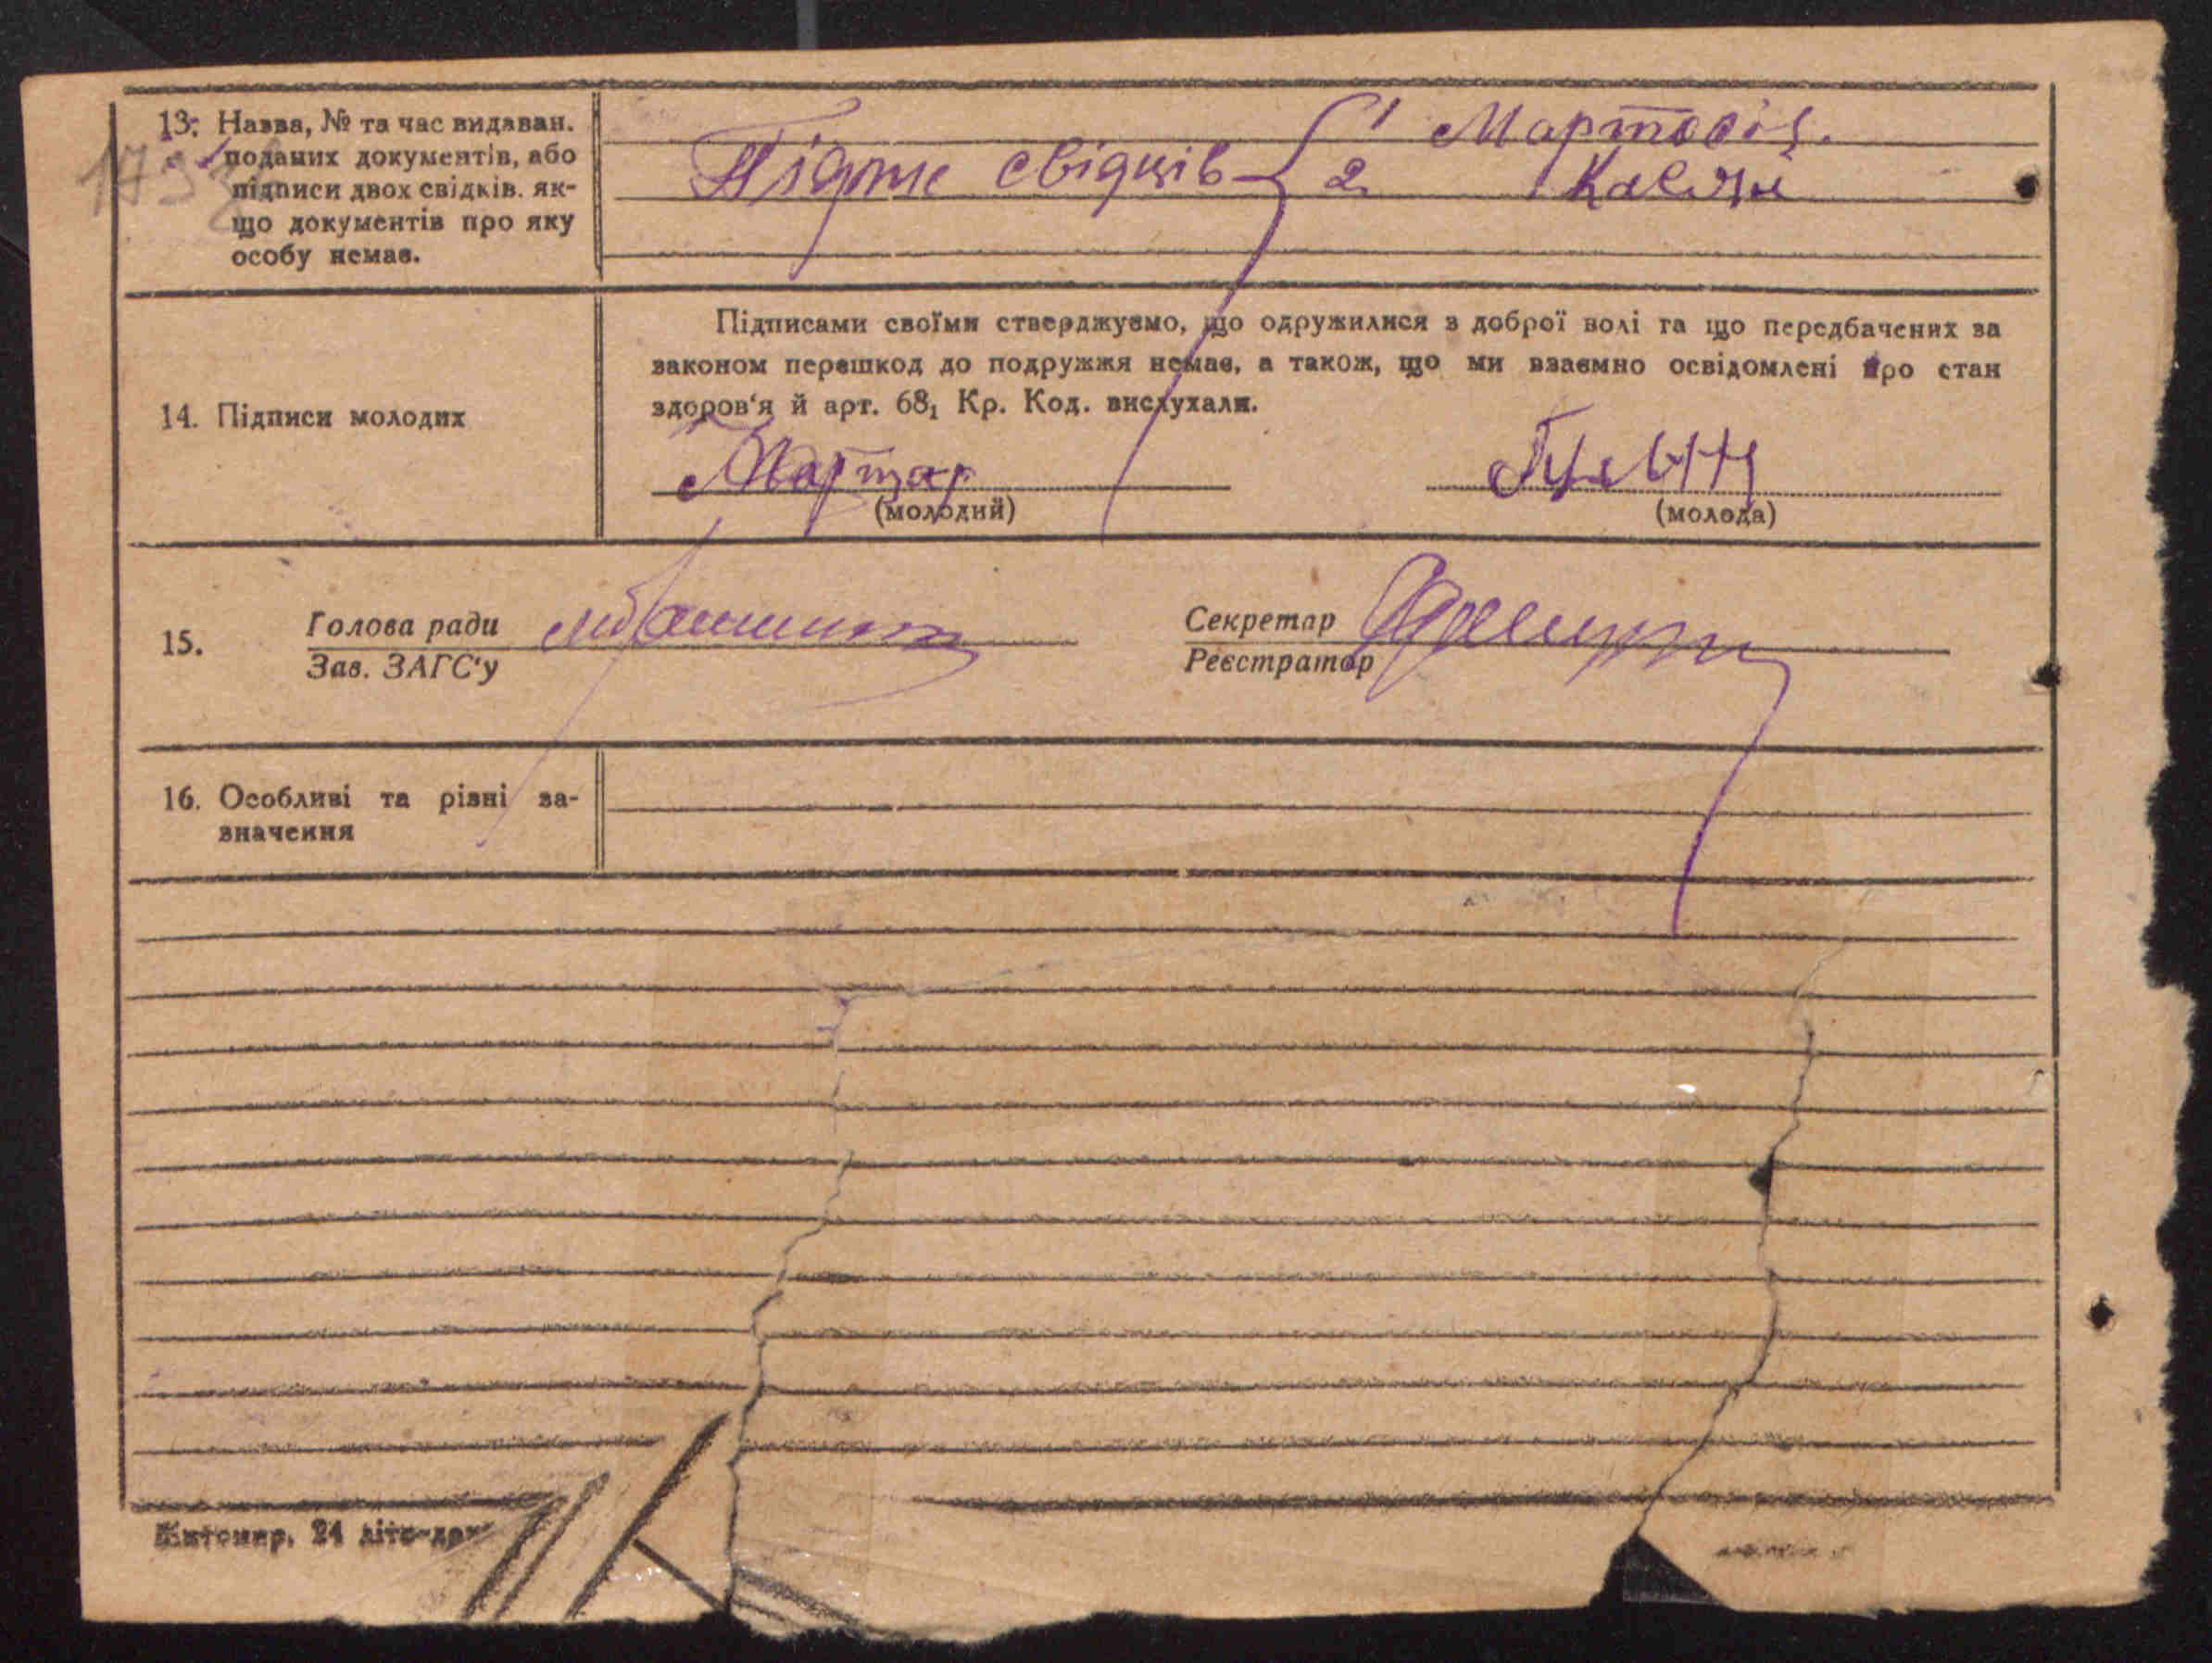 13. Назва, № та час видаван.
поданих документів, або
підписи двох свідків. як-
що документів про яку
особу немає.
Підпис свідців { 1
2
14. Підписи молодих
Підписами своїми стверджуємо, що одружилися з доброї волі та що передбачених за
законом перешкод до подружжя немає, а також, що ми взаємно освідомлені про стан
здоров'я й арт. 68₁ Кр. Код. вислухали.
(молодий)
(молода)
15.
Голова ради
Зав. ЗАГС'у
Секретар
Реєстратор
16. Особливі та різні за-
значення
Житомир, 24 літо-др